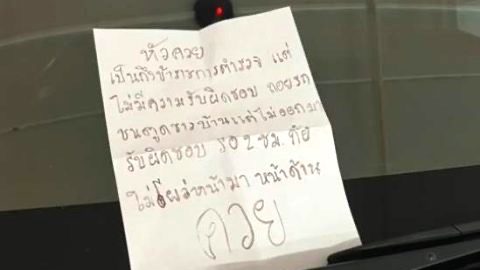 หัวควย
เป็นถึงข้าราชการตำรวจ แต่
ไม่มีความรับผิดชอบ ถอยรถ
ชนตูดชาวบ้านแต่ไม่ออกมา
รับผิดชอบ รอ 2 ชม. ก็ยัง
ไม่โผล่หน้ามา หน้าด้าน
ควย